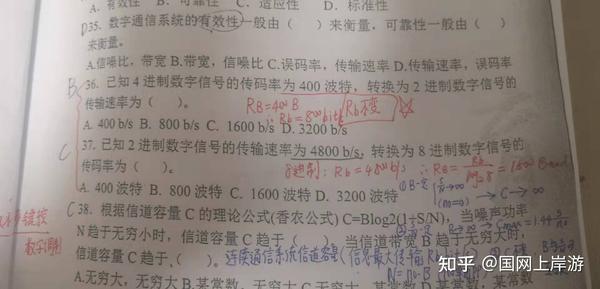 A. 有效性 B. 可靠性 C. 适应性 D. 标准性
D35. 数字通信系统的有效性一般由（ ）来衡量，可靠性一般由（ ）
来衡量。
A.信噪比，带宽 B.带宽，信噪比 C.误码率，传输速率 D.传输速率，误码率
B 36. 已知 4 进制数字信号的传码率为 400 波特，转换为 2 进制数字信号的
传输速率为（ ）。 RB=400B
∴Rb=800bit/s Rb不变
A. 400 b/s B. 800 b/s C. 1600 b/s D. 3200 b/s
C 37. 已知 2 进制数字信号的传输速率为 4800 b/s，转换为 8 进制数字信号的
传码率为（ ）。 8进制: Rb=4800b/s ∴RB= Rb/log₂8 =1600 Baud
A. 400 波特 B. 800 波特 C. 1600 波特 D. 3200 波特
C 38. 根据信道容量 C 的理论公式(香农公式) C=Blog2(1+S/N)，当噪声功率
N 趋于无穷小时，信道容量 C 趋于（ ），当信道带宽 B 趋于无穷时，
信道容量 C 趋于（ ）。 连续通信系统信道容量
A.无穷大，无穷大 B.某常数，无穷大 C.无穷大，某常数 D.某常数，某常数
数字调制
知乎 @国网上岸游